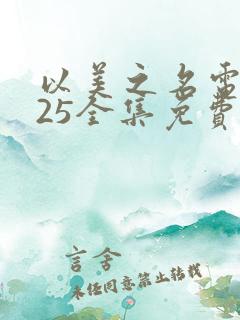 以美之名電
25全集免費
言舍
未经同意禁止转载